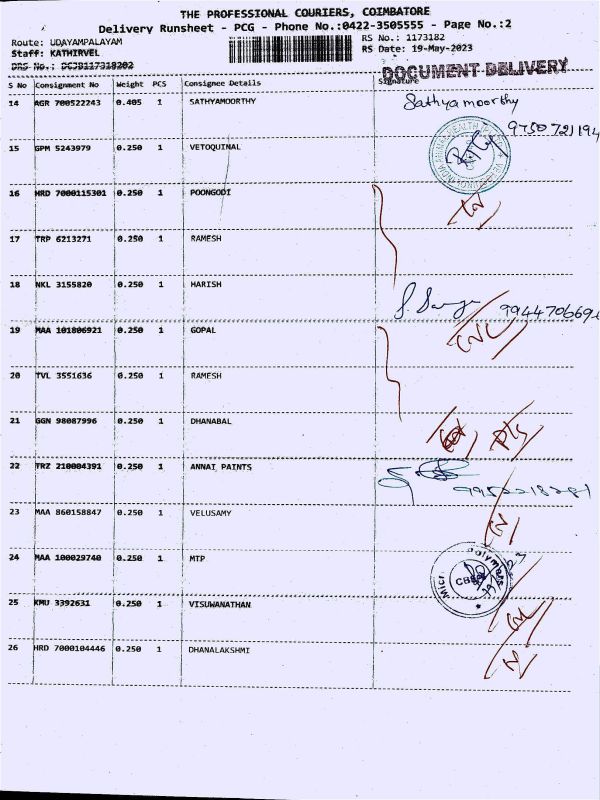 THE PROFESSIONAL COURIERS, COIMBATORE
Delivery Runsheet - PCG - Phone No.:0422-3505555 - Page No.:2
Route: UDAYAMPALAYAM
RS No.: 1173182
Staff: KATHIRVEL
RS Date: 19-May-2023
DRS No.: DCJB117318202
DOCUMENT DELIVERY
S No Consignment No Weight PCS Consignee Details Signature
14 AGR 700522243 0.405 1 SATHYAMOORTHY Sathyamoorthy
9750721194
15 GPM 5243979 0.250 1 VETOQUINAL
16 HRD 7000115301 0.250 1 POONGODI
17 TRP 6213271 0.250 1 RAMESH
18 NKL 3155820 0.250 1 HARISH
19 MAA 101806921 0.250 1 GOPAL
20 TVL 3551636 0.250 1 RAMESH
21 GGN 98087996 0.250 1 DHANABAL
22 TRZ 210004391 0.250 1 ANNAI PAINTS
23 MAA 860158847 0.250 1 VELUSAMY
24 MAA 100029740 0.250 1 MTP
25 KMU 3392631 0.250 1 VISUWANATHAN
26 HRD 7000104446 0.250 1 DHANALAKSHMI